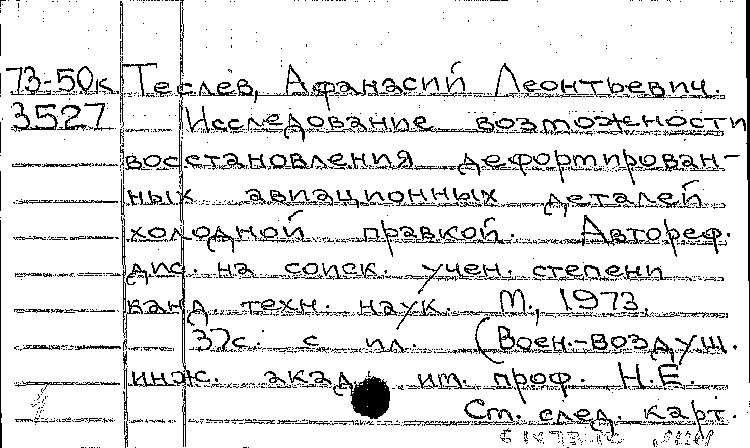 73-50к Теслев, Афанасий Леонтьевич.
3527 Исследование возможности
восстановления деформирован-
ных авиационных деталей
холодной правкой. Автореф.
дис. на соиск. учен. степени
канд техн. наук. М., 1973.
37с. с ил. (Воен.-воздуш.
инж. акад. им. проф. Н.Е.
См. след. карт.